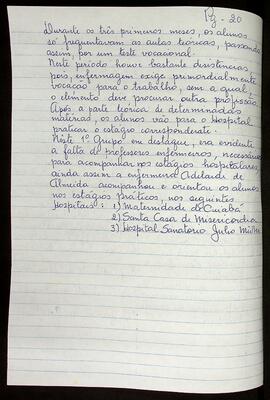 Pg - 20
Durante os três primeiros meses, os alunos
só frequentavam as aulas teóricas, passando
assim, por um teste vocacional.
Neste período houve bastante desistências
pois, enfermagem exige primordialmente
vocação para o trabalho, sem a qual,
o elemento deve procurar outra profissão.
Após a parte teórica de determinadas
matérias, os alunos vão para o Hospital
praticar o estágio correspondente.
Neste 1º Grupo em destaque, era evidente
a falta de professores enfermeiros, necessários
para acompanhar nos estágios hospitalares,
ainda assim a enfermeira Adelaide de
Almeida acompanhou e orientou os alunos
nos estágios práticos, nos seguintes
Hospitais: 1) Maternidade de Cuiabá
2) Santa Casa de Misericórdia
3) Hospital Sanatório Julio Müller